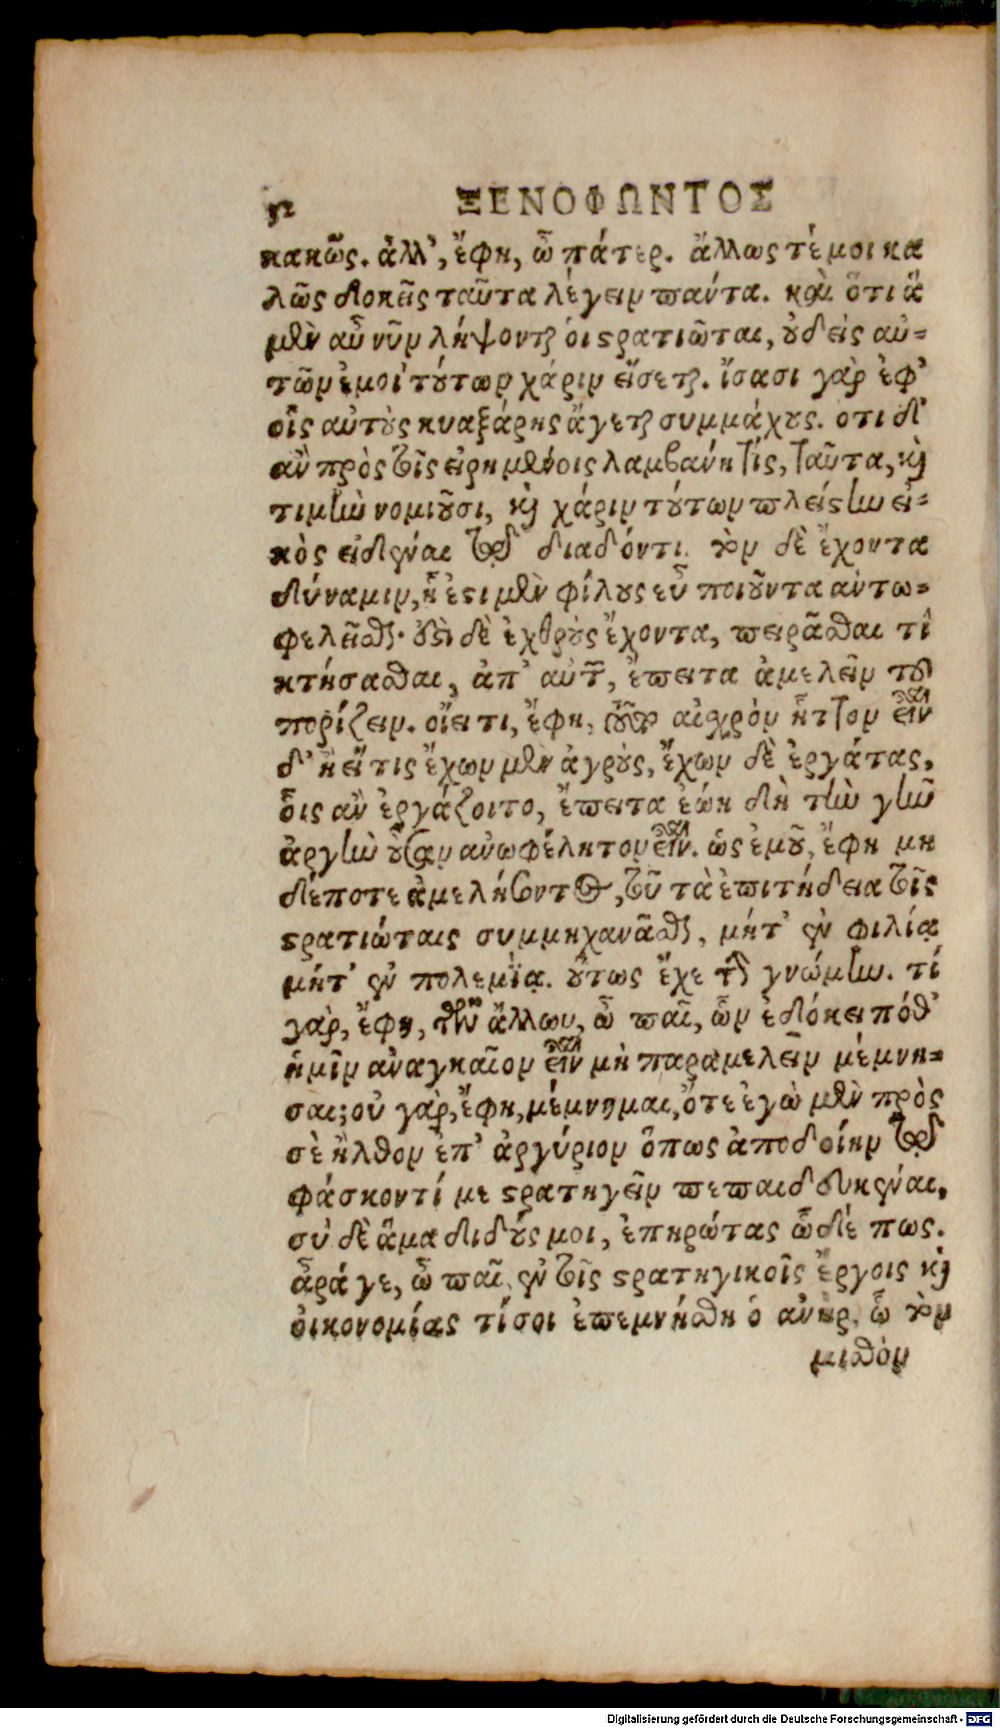 52 ΞΕΝΟΦΩΝΤΟΣ
κακῶς. ἀλλ', ἔφη, ὦ πάτερ. ἄλλως τέ μοι κα
λῶς δοκεῖς ταῦτα λέγειν πάντα. καὶ ὅτι ἃ
μὲν αὖ νῦν λήψονται οἱ στρατιῶται, οὐδεὶς αὐ-
τῶν ἐμοὶ τούτων χάριν εἴσεται. ἴσασι γὰρ ἐφ'
οἷς αὐτοὺς κυαξάρης ἄγεται συμμάχους. ὅτι δ'
ἂν πρὸς τοῖς εἰρημένοις λαμβάνῃ τίς, ταῦτα, καὶ
τιμὴν νομιοῦσι, καὶ χάριν τούτων πλείστην εἰ-
κὸς εἰδέναι τῷ διαδόντι. τὸν δὲ ἔχοντα
δύναμιν, ᾗ ἐστι μὲν φίλους εὖ ποιοῦντα ἀντω-
φελεῖσθαι. ἔστι δὲ ἐχθροὺς ἔχοντα, πειρᾶσθαι τι
κτήσασθαι, ἀπ' αὐτῶν, ἔπειτα ἀμελεῖν τοῦ
πορίζειν. οἴει τι, ἔφη, τοῦτο αἰσχρὸν ἧττον εἶναι
δ' ἢ εἴ τις ἔχων μὲν ἀγροὺς, ἔχων δὲ ἐργάτας,
οἷς ἂν ἐργάζοιτο, ἔπειτα ἐώη δὴ τὴν γῆν
ἀργὴν οὖσαν ἀνωφέλητον εἶναι. ὡς ἐμοῦ, ἔφη μη
δέποτε ἀμελήσοντος, τοῦ τὰ ἐπιτήδεια τοῖς
στρατιώταις συμμηχανᾶσθαι, μήτ' ἐν φιλίᾳ
μήτ' ἐν πολεμίᾳ. οὕτως ἔχε τὴν γνώμην. τί
γὰρ, ἔφη, τῶν ἄλλων, ὦ παῖ, ὧν ἐδόκει πόθ'
ἡμῖν ἀναγκαῖον εἶναι μὴ παραμελεῖν μέμνη-
σαι; οὐ γὰρ, ἔφη, μέμνημαι, ὅτε ἐγὼ μὲν πρὸς
σὲ ἦλθον ἐπ' ἀργύριον ὅπως ἀποδοίην τῷ
φάσκοντί με στρατηγεῖν πεπαιδευκέναι,
σὺ δὲ ἅμα διδούς μοι, ἐπηρώτας ὧδέ πως.
ἆρά γε, ὦ παῖ, ἐν τοῖς στρατηγικοῖς ἔργοις καὶ
οἰκονομίας τί σοι ἐπεμνήσθη ὁ ἀνὴρ, ᾧ τὸν
μισθὸν